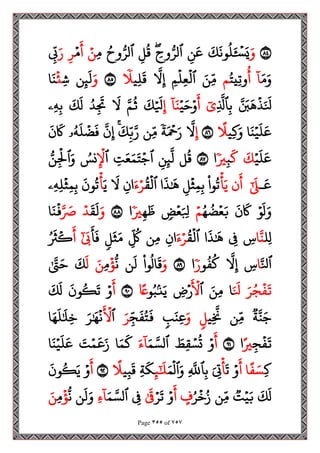 ٨٤ وَيَسۡـَٔلُونَكَ عَنِ ٱلرُّوحِۖ قُلِ ٱلرُّوحُ مِنۡ أَمۡرِ رَبِّي
وَمَآ أُوتِيتُم مِّنَ ٱلۡعِلۡمِ إِلَّا قَلِيلٗا ٨٥ وَلَئِن شِئۡنَا
لَنَذۡهَبَنَّ بِٱلَّذِيٓ أَوۡحَيۡنَآ إِلَيۡكَ ثُمَّ لَا تَجِدُ لَكَ بِهِۦ
عَلَيۡنَا وَكِيلًا ٨٦ إِلَّا رَحۡمَةٗ مِّن رَّبِّكَۚ إِنَّ فَضۡلَهُۥ كَانَ
عَلَيۡكَ كَبِيرٗا ٨٧ قُل لَّئِنِ ٱجۡتَمَعَتِ ٱلۡإِنسُ وَٱلۡجِنُّ
عَلَىٰٓ أَن يَأۡتُواْ بِمِثۡلِ هَٰذَا ٱلۡقُرۡءَانِ لَا يَأۡتُونَ بِمِثۡلِهِۦ
وَلَوۡ كَانَ بَعۡضُهُمۡ لِبَعۡضٖ ظَهِيرٗا ٨٨ وَلَقَدۡ صَرَّفۡنَا
لِلنَّاسِ فِي هَٰذَا ٱلۡقُرۡءَانِ مِن كُلِّ مَثَلٖ فَأَبَىٰٓ أَكۡثَرُ
ٱلنَّاسِ إِلَّا كُفُورٗا ٨٩ وَقَالُواْ لَن نُّؤۡمِنَ لَكَ حَتَّىٰ
تُفَجِّرَ لَنَا مِنَ ٱلۡأَرۡضِ يَنۢبُوعًا ٩٠ أَوۡ تَكُونَ لَكَ
جَنَّةٞ مِّن نَّخِيلٖ وَعِنَبٖ فَتُفَجِّرَ ٱلۡأَنۡهَٰرَ خِلَٰلَهَا
تَفۡجِيرًا ٩١ أَوۡ تُسۡقِطَ ٱلسَّمَآءَ كَمَا زَعَمۡتَ عَلَيۡنَا
كِسۡفًا أَوۡ تَأۡتِيَ بِٱللَّهِ وَٱلۡمَلَٰٓئِكَةِ قَبِيلًا ٩٢ أَوۡ يَكُونَ
لَكَ بَيۡتٞ مِّن زُخۡرُفٍ أَوۡ تَرۡقَىٰ فِي ٱلسَّمَآءِ وَلَن نُّؤۡمِنَ
Page ٤٥٥ of ٧٥٧